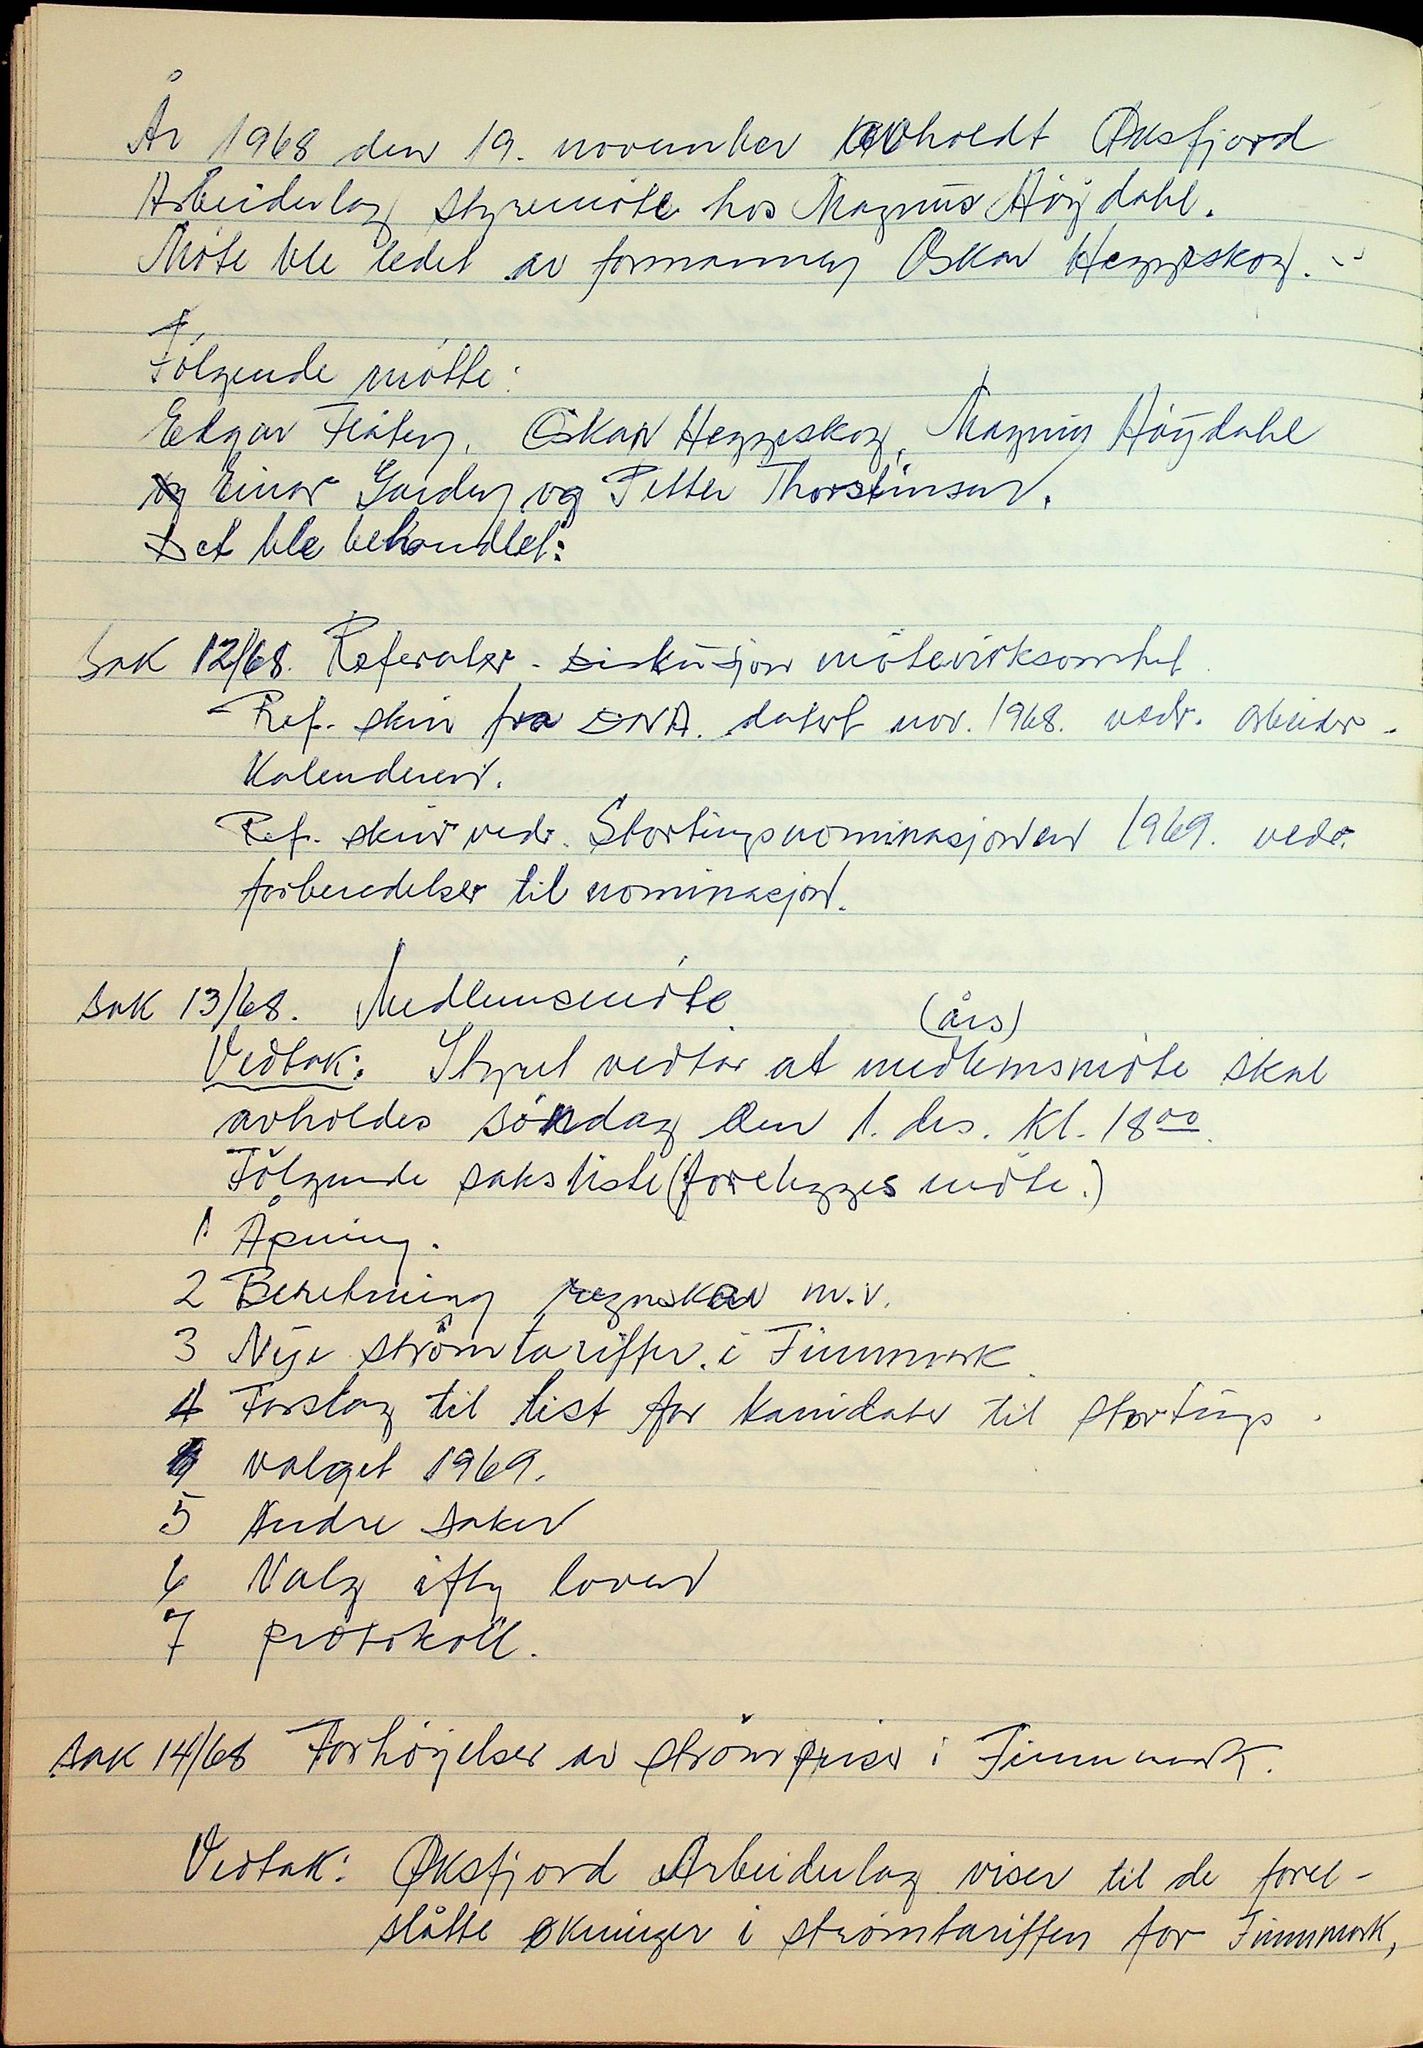 År 1968 den 19. november avholdt Øksfjord
Arbeiderlag styremöte hos Magnus Höydahl.
Möte ble ledet av formannen Oskar Heggeskog.
Fölgende mötte:
Edgar Flåten, Oskar Heggeskog, Magnus Höydahl
og Einar Garden og Petter Thorstensen.
Det ble behandlet:
Sak 12/68. Referater - Diskusjon mötevirksomhet
Ref. skriv fra DNA. datert nov. 1968. vedr. arbeider-
kalenderen.
Ref. skriv vedr. Stortingsnominasjonen 1969. vedr.
forberedelser til nominasjon.
Sak 13/68. Medlemsmöte
(års)
Vedtak: Styret vedtar at medlemsmöte skal
avholdes söndag den 1. des. kl. 18 00
Fölgende saksliste (forelegges möte.)
1 Åpning.
2 Beretning regnskav m.v.
3 Nye strömtariffer i Finnmark
4 Forslag til list for kanidater til stortings-
valget 1969.
5 Andre saker
6 Valg iflg loven
7 protokoll.
Sak 14/68 Forhöyelser av strömpriser i Finnmark.
Vedtak: Øksfjord Arbeiderlag viser til de forel-
slåtte økninger i strømtariffen for Finnmark,